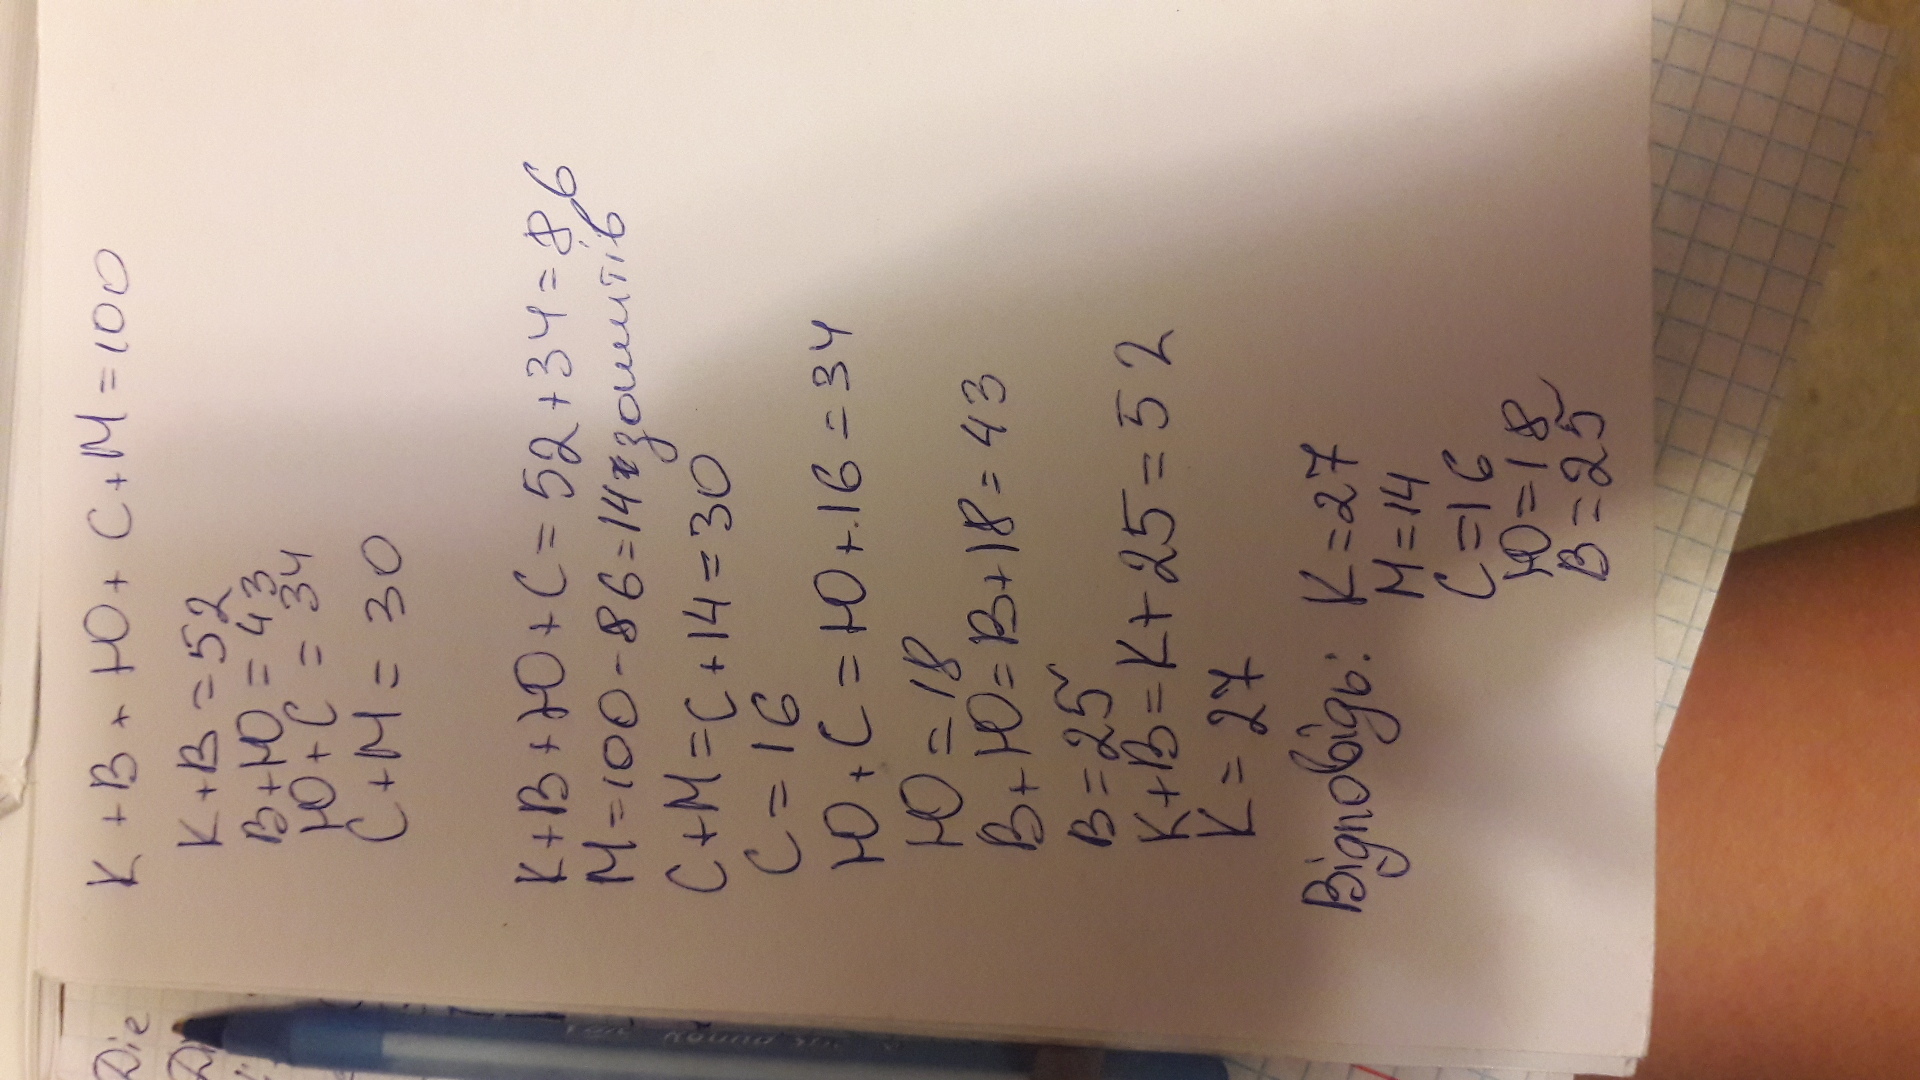 К + В + Ю + С + М = 100
К + В = 52
В + Ю = 43
Ю + С = 34
С + М = 30
К + В + Ю + С = 52 + 34 = 86
М = 100 - 86 = 14 зошитів
С + М = С + 14 = 30
С = 16
Ю + С = Ю + 16 = 34
Ю = 18
В + Ю = В + 18 = 43
В = 25
К + В = К + 25 = 52
К = 27
Відповідь: К = 27
М = 14
С = 16
Ю = 18
В = 25
Die